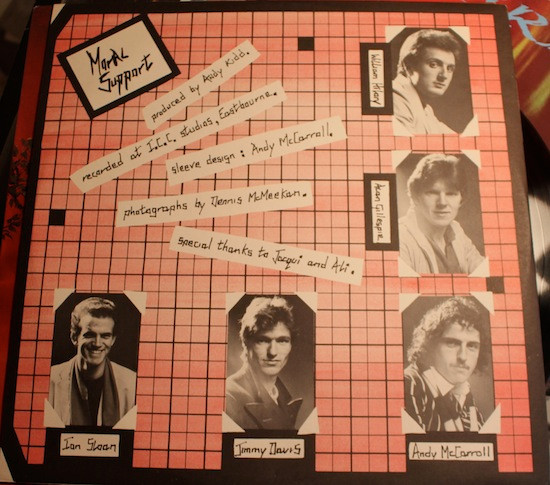 Moral
Support
produced by Andy Kidd.
recorded at I.C.C. studios, Eastbourne.
sleeve design : Andy McCarroll.
photographs by Dennis McMeekan.
special thanks to Jacqui and Ali.
William Hilary
Alan Gillespie
Ian Sloan
Jimmy Davis
Andy McCarroll